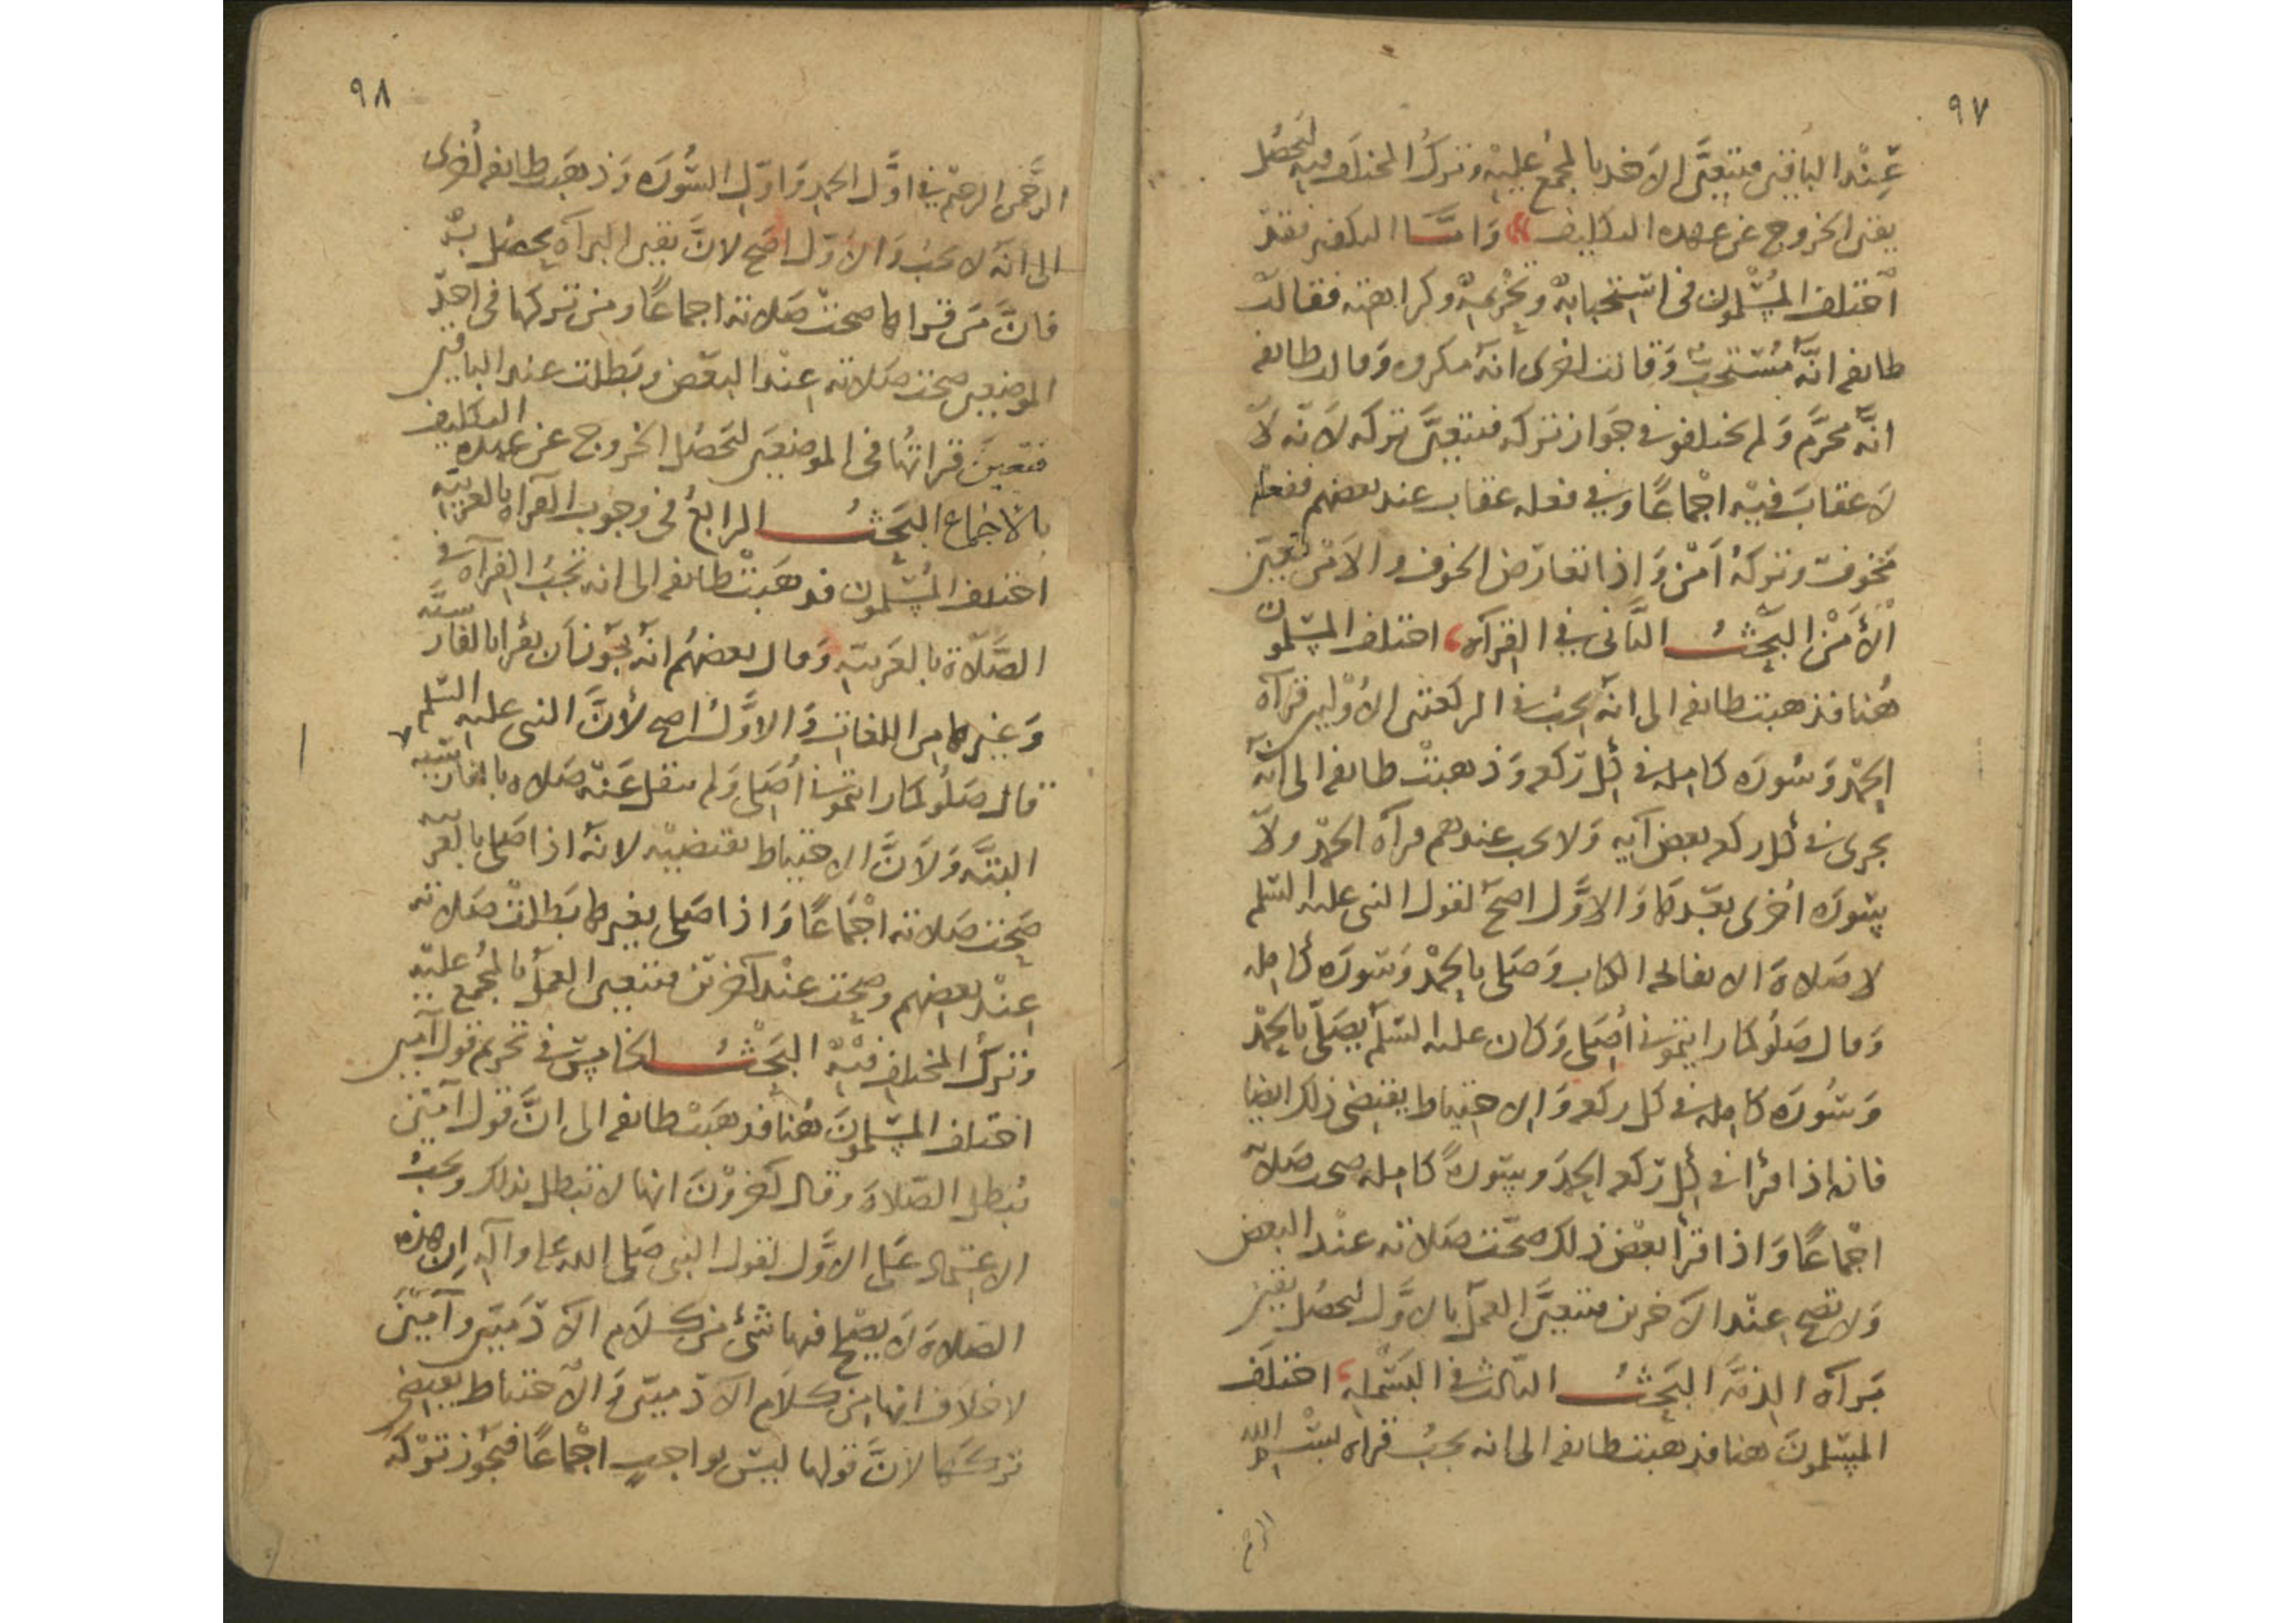 ٩٧
عِنْد الباقين فتتعيَّن الاخد بالمجمع عليه وترك المختلف فيه لتحصُل
يقين الخروج عن عهده التكليف وَامَّا التكفير فقد
اختلف المُسْلمون فى استحبابه وتحْريمه وكراهته فقالت
طائفه انّه مُسْتحبّ وَقالت اخرى انّه مكروه وَقالت طائفه
انّه محرَّم وَلم يختلفو فى جَواز تركه فتتعيَّن تركه لاَنّه لا
لاَ عقابَ فيْه اجْماعًا وفى فعله عقاب عند بعضهم ففعله
مخوف وتركهُ اَمْن وَاذا تعارَض الخوف والاَمْن تعيّن
الأَمْن البَحْثُ الثَّانى فى القرآه اختلف المسْلمون
هُنا فذهبت طائفه الى انّه يجبُ فى الركعتين الأوْليين قرآة
الحمْد وَسُورَه كامله فى كُل رَكعه وَذهبتْ طائفه الى انّه
يجزى فى كُل ركعه بعض آيه وَلا يجب عندهم قرآه الحمْد ولا
سُورَه اُخرى بعْدها وَالاوَّل اصحّ لقول النبى عليه السّلم
لا صَلاةَ الا بفاتحه الكتاب وَصَلى بالحمْد وَسُورَه كَامله
وَقال صَلُو كما راَيتمونى اُصَلى وَكان عليه السّلم يصَلّى بالحمْد
وَسُورَه كامله فى كل ركعه وَالاحتياط يقتضى ذلك ايضا
فانه اذا قرأ فى كُل رَكعه الحمدَ وسُورةً كامله صحت صَلاته
اجْماعًا وَاذا قرأ بعْض ذلك صحّت صَلاته عنْد البعض
وَلا تصح عِنْد الآخرين فتتعيَّن العمل بالاوَّل لتحصُل يقين
بَرآه الذمّه البَحْثُ الثالث فى البَسْمله اختلَف
المسْلمونَ هنا فذهبت طائفه الى انه يجبُ قرأه بسْم الله
الرح
٩٨
الرَّحمن الرحيم فى اوَّل الحمد وَاوّل السُّورَه وَذهبَت طائفه اُخرى
الى انّه لا يجبُ وَالاَوّل اصَح لانَّ يقين البرآه يحصُل به
فانَّ مَن قراها صحتْ صَلاته اجماعًا ومن تركها فى احد
الموضِعين صحت صَلاته عِنْد البعْض وبَطلت عند الباقين
فتعيَّن قراتُها فى الموضِعَين لتحصُل الخروج عن عهده التكليف
بالاجْماع البَحْثُ الرابعُ فى وجوب القرآه بالعربيّه
اختلف المُسْلمون فذهَبتْ طائفه الى انه تجبُ القرآه فى
الصَّلاة بالعَربيّه وَقال بعضهُم انّه يجُوز اَن يقرا بالفارسيّه
وَغيرها من اللغات وَالاوَّلُ اصح لأنَّ النبى عليه السّلم
قال صَلُو كما راَيتمونى اُصَلى وَلم ينقل عَنْه صَلاه بالفارسيه
البتّه وَلاَنَّ الاحتياط يقتضيْه لانّهُ اذا صَلى بالعربيه
صَحت صَلاته اجْماعًا وَاذا صَلى بغيرها بَطلتْ صَلاته
عِنْد بعضهم وصحت عنْد آخرين فتتعين العمل بالمجُمع عليه
وتركُ المختلف فيْه البَحْثُ الخامِس فى تحريم قول آمين
اختلف المسْلمونَ هُنا فذهَبتْ طائفه الى انَّ قول آمينْ
تُبطل الصّلاةَ وقال آخرُوْنَ انها لا تبطل بذلك ويجبُ
الاعتماد عَلى الاوَّل لقول النبى صَلى الله عليه وآله ان هذه
الصَلاةَ لاَ يصْلح فيها شئ من كلام الآدَميّين وآمين
لا خلاف انها من كلام الآدَميّين وَالاحتياط يقتضى
تركها لانَّ قولها ليْسَ بواجبٍ اجْماعًا فيجُوز تركه